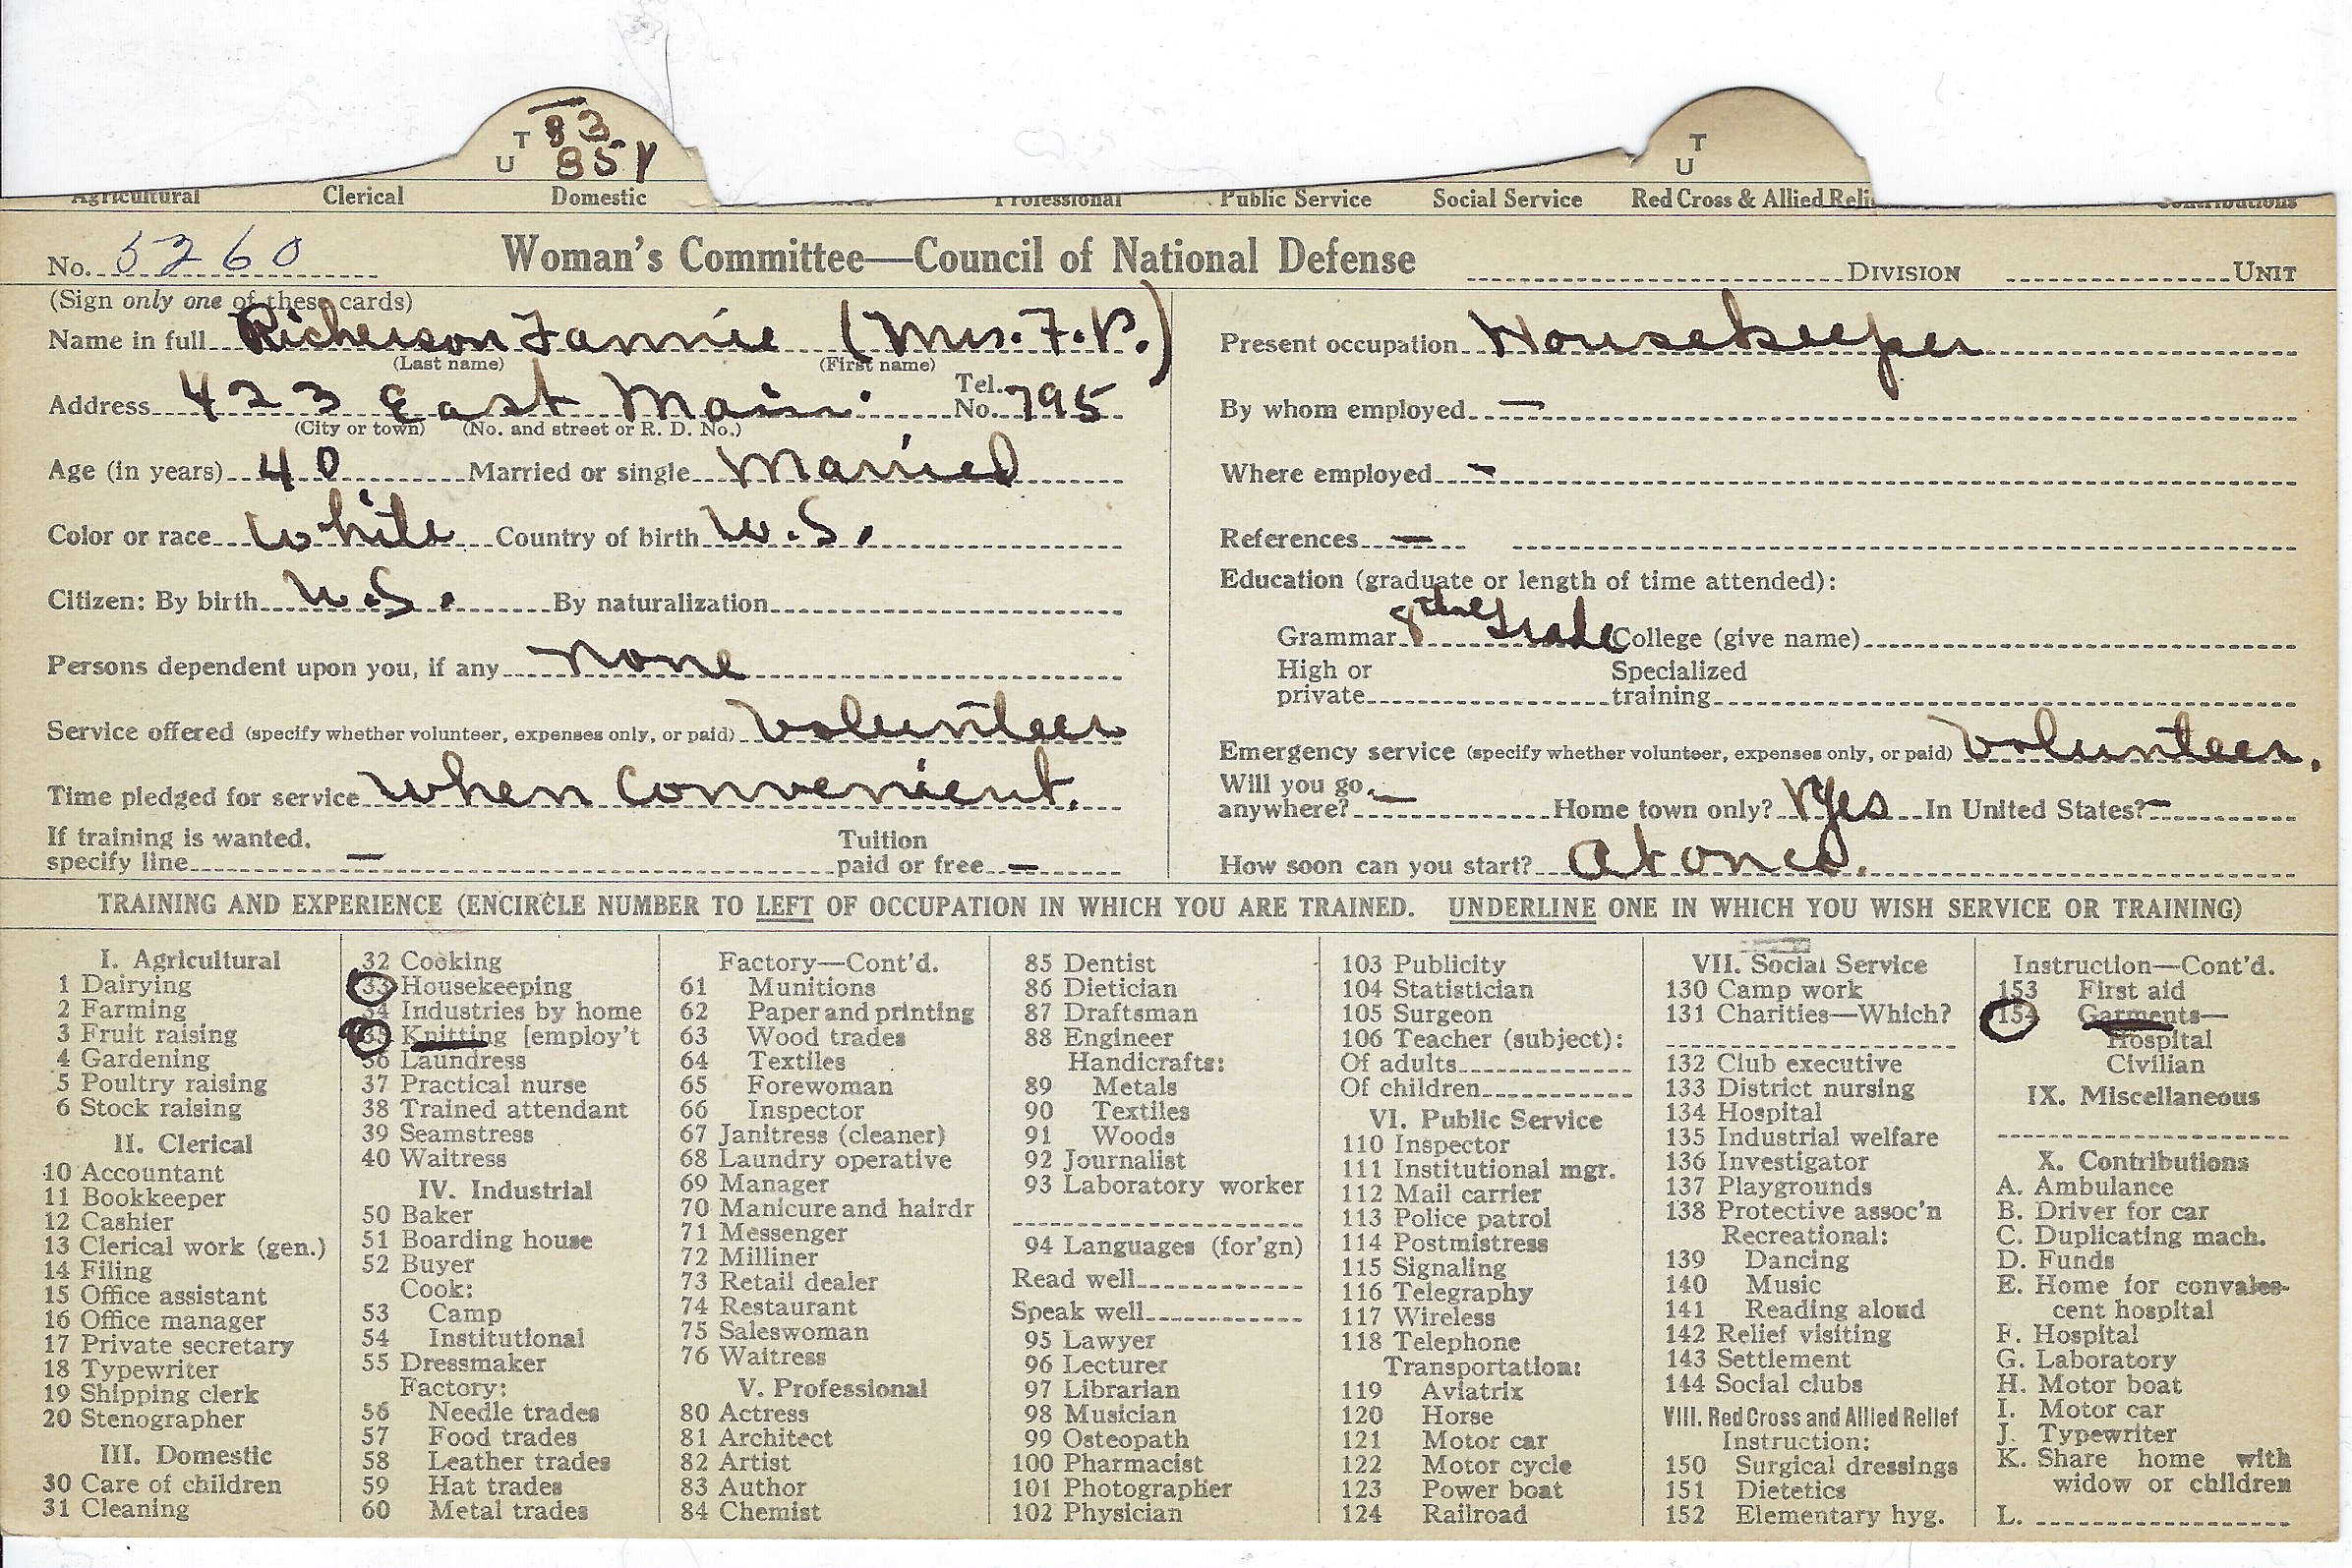 T 33
U 35
T
U
Agricultural Clerical Domestic Professional Public Service Social Service Red Cross & Allied Reli Contributions
No. 5260 Woman's Committee—Council of National Defense DIVISION UNIT
(Sign only one of these cards)
Name in full Richerson Fannie (Mrs. F. P.)
(Last name) (First name)
Address 423 East Main. Tel. No. 795
(City or town) (No. and street or R. D. No.)
Age (in years) 40 Married or single Married
Color or race White Country of birth U.S.
Citizen: By birth U.S. By naturalization
Persons dependent upon you, if any none
Service offered (specify whether volunteer, expenses only, or paid) Volunteer
Time pledged for service When Convenient.
If training is wanted, specify line — Tuition paid or free —
Present occupation Housekeeper
By whom employed —
Where employed -
References —
Education (graduate or length of time attended):
Grammar 8th Grade College (give name)
High or private Specialized training
Emergency service (specify whether volunteer, expenses only, or paid) Volunteer.
Will you go anywhere? — Home town only? Yes In United States? —
How soon can you start? At once.
TRAINING AND EXPERIENCE (ENCIRCLE NUMBER TO LEFT OF OCCUPATION IN WHICH YOU ARE TRAINED. UNDERLINE ONE IN WHICH YOU WISH SERVICE OR TRAINING)
I. Agricultural
1 Dairying
2 Farming
3 Fruit raising
4 Gardening
5 Poultry raising
6 Stock raising
II. Clerical
10 Accountant
11 Bookkeeper
12 Cashier
13 Clerical work (gen.)
14 Filing
15 Office assistant
16 Office manager
17 Private secretary
18 Typewriter
19 Shipping clerk
20 Stenographer
III. Domestic
30 Care of children
31 Cleaning
32 Cooking
33 Housekeeping
34 Industries by home
35 Knitting [employ't
36 Laundress
37 Practical nurse
38 Trained attendant
39 Seamstress
40 Waitress
IV. Industrial
50 Baker
51 Boarding house
52 Buyer
Cook:
53 Camp
54 Institutional
55 Dressmaker
Factory:
56 Needle trades
57 Food trades
58 Leather trades
59 Hat trades
60 Metal trades
Factory—Cont'd.
61 Munitions
62 Paper and printing
63 Wood trades
64 Textiles
65 Forewoman
66 Inspector
67 Janitress (cleaner)
68 Laundry operative
69 Manager
70 Manicure and hairdr
71 Messenger
72 Milliner
73 Retail dealer
74 Restaurant
75 Saleswoman
76 Waitress
V. Professional
80 Actress
81 Architect
82 Artist
83 Author
84 Chemist
85 Dentist
86 Dietician
87 Draftsman
88 Engineer
Handicrafts:
89 Metals
90 Textiles
91 Woods
92 Journalist
93 Laboratory worker
94 Languages (for'gn)
Read well
Speak well
95 Lawyer
96 Lecturer
97 Librarian
98 Musician
99 Osteopath
100 Pharmacist
101 Photographer
102 Physician
103 Publicity
104 Statistician
105 Surgeon
106 Teacher (subject):
Of adults
Of children
VI. Public Service
110 Inspector
111 Institutional mgr.
112 Mail carrier
113 Police patrol
114 Postmistress
115 Signaling
116 Telegraphy
117 Wireless
118 Telephone
Transportation:
119 Aviatrix
120 Horse
121 Motor car
122 Motor cycle
123 Power boat
124 Railroad
VII. Social Service
130 Camp work
131 Charities—Which?
132 Club executive
133 District nursing
134 Hospital
135 Industrial welfare
136 Investigator
137 Playgrounds
138 Protective assoc'n
Recreational:
139 Dancing
140 Music
141 Reading aloud
142 Relief visiting
143 Settlement
144 Social clubs
VIII. Red Cross and Allied Relief
Instruction:
150 Surgical dressings
151 Dietetics
152 Elementary hyg.
Instruction—Cont'd.
153 First aid
154 Garments—
Hospital
Civilian
IX. Miscellaneous
X. Contributions
A. Ambulance
B. Driver for car
C. Duplicating mach.
D. Funds
E. Home for convales-
cent hospital
F. Hospital
G. Laboratory
H. Motor boat
I. Motor car
J. Typewriter
K. Share home with
widow or children
L.